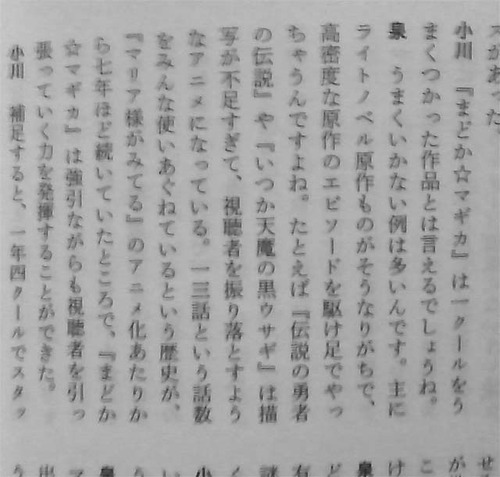 小川　『まどか☆マギカ』は一クールをう
まくつかった作品とは言えるでしょうね。
泉　うまくいかない例は多いんです。主に
ライトノベル原作ものがそうなりがちで、
高密度な原作のエピソードを駆け足でやっ
ちゃうんですよね。たとえば『伝説の勇者
の伝説』や『いつか天魔の黒ウサギ』は描
写が不足すぎて、視聴者を振り落とすよう
なアニメになっている。一三話という話数
をみんな使いあぐねているという歴史が、
『マリア様がみてる』のアニメ化あたりか
ら七年ほど続いていたところで、『まどか
☆マギカ』は強引ながらも視聴者を引っ
張っていく力を発揮することができた。
小川　補足すると、一年四クールでスタッ